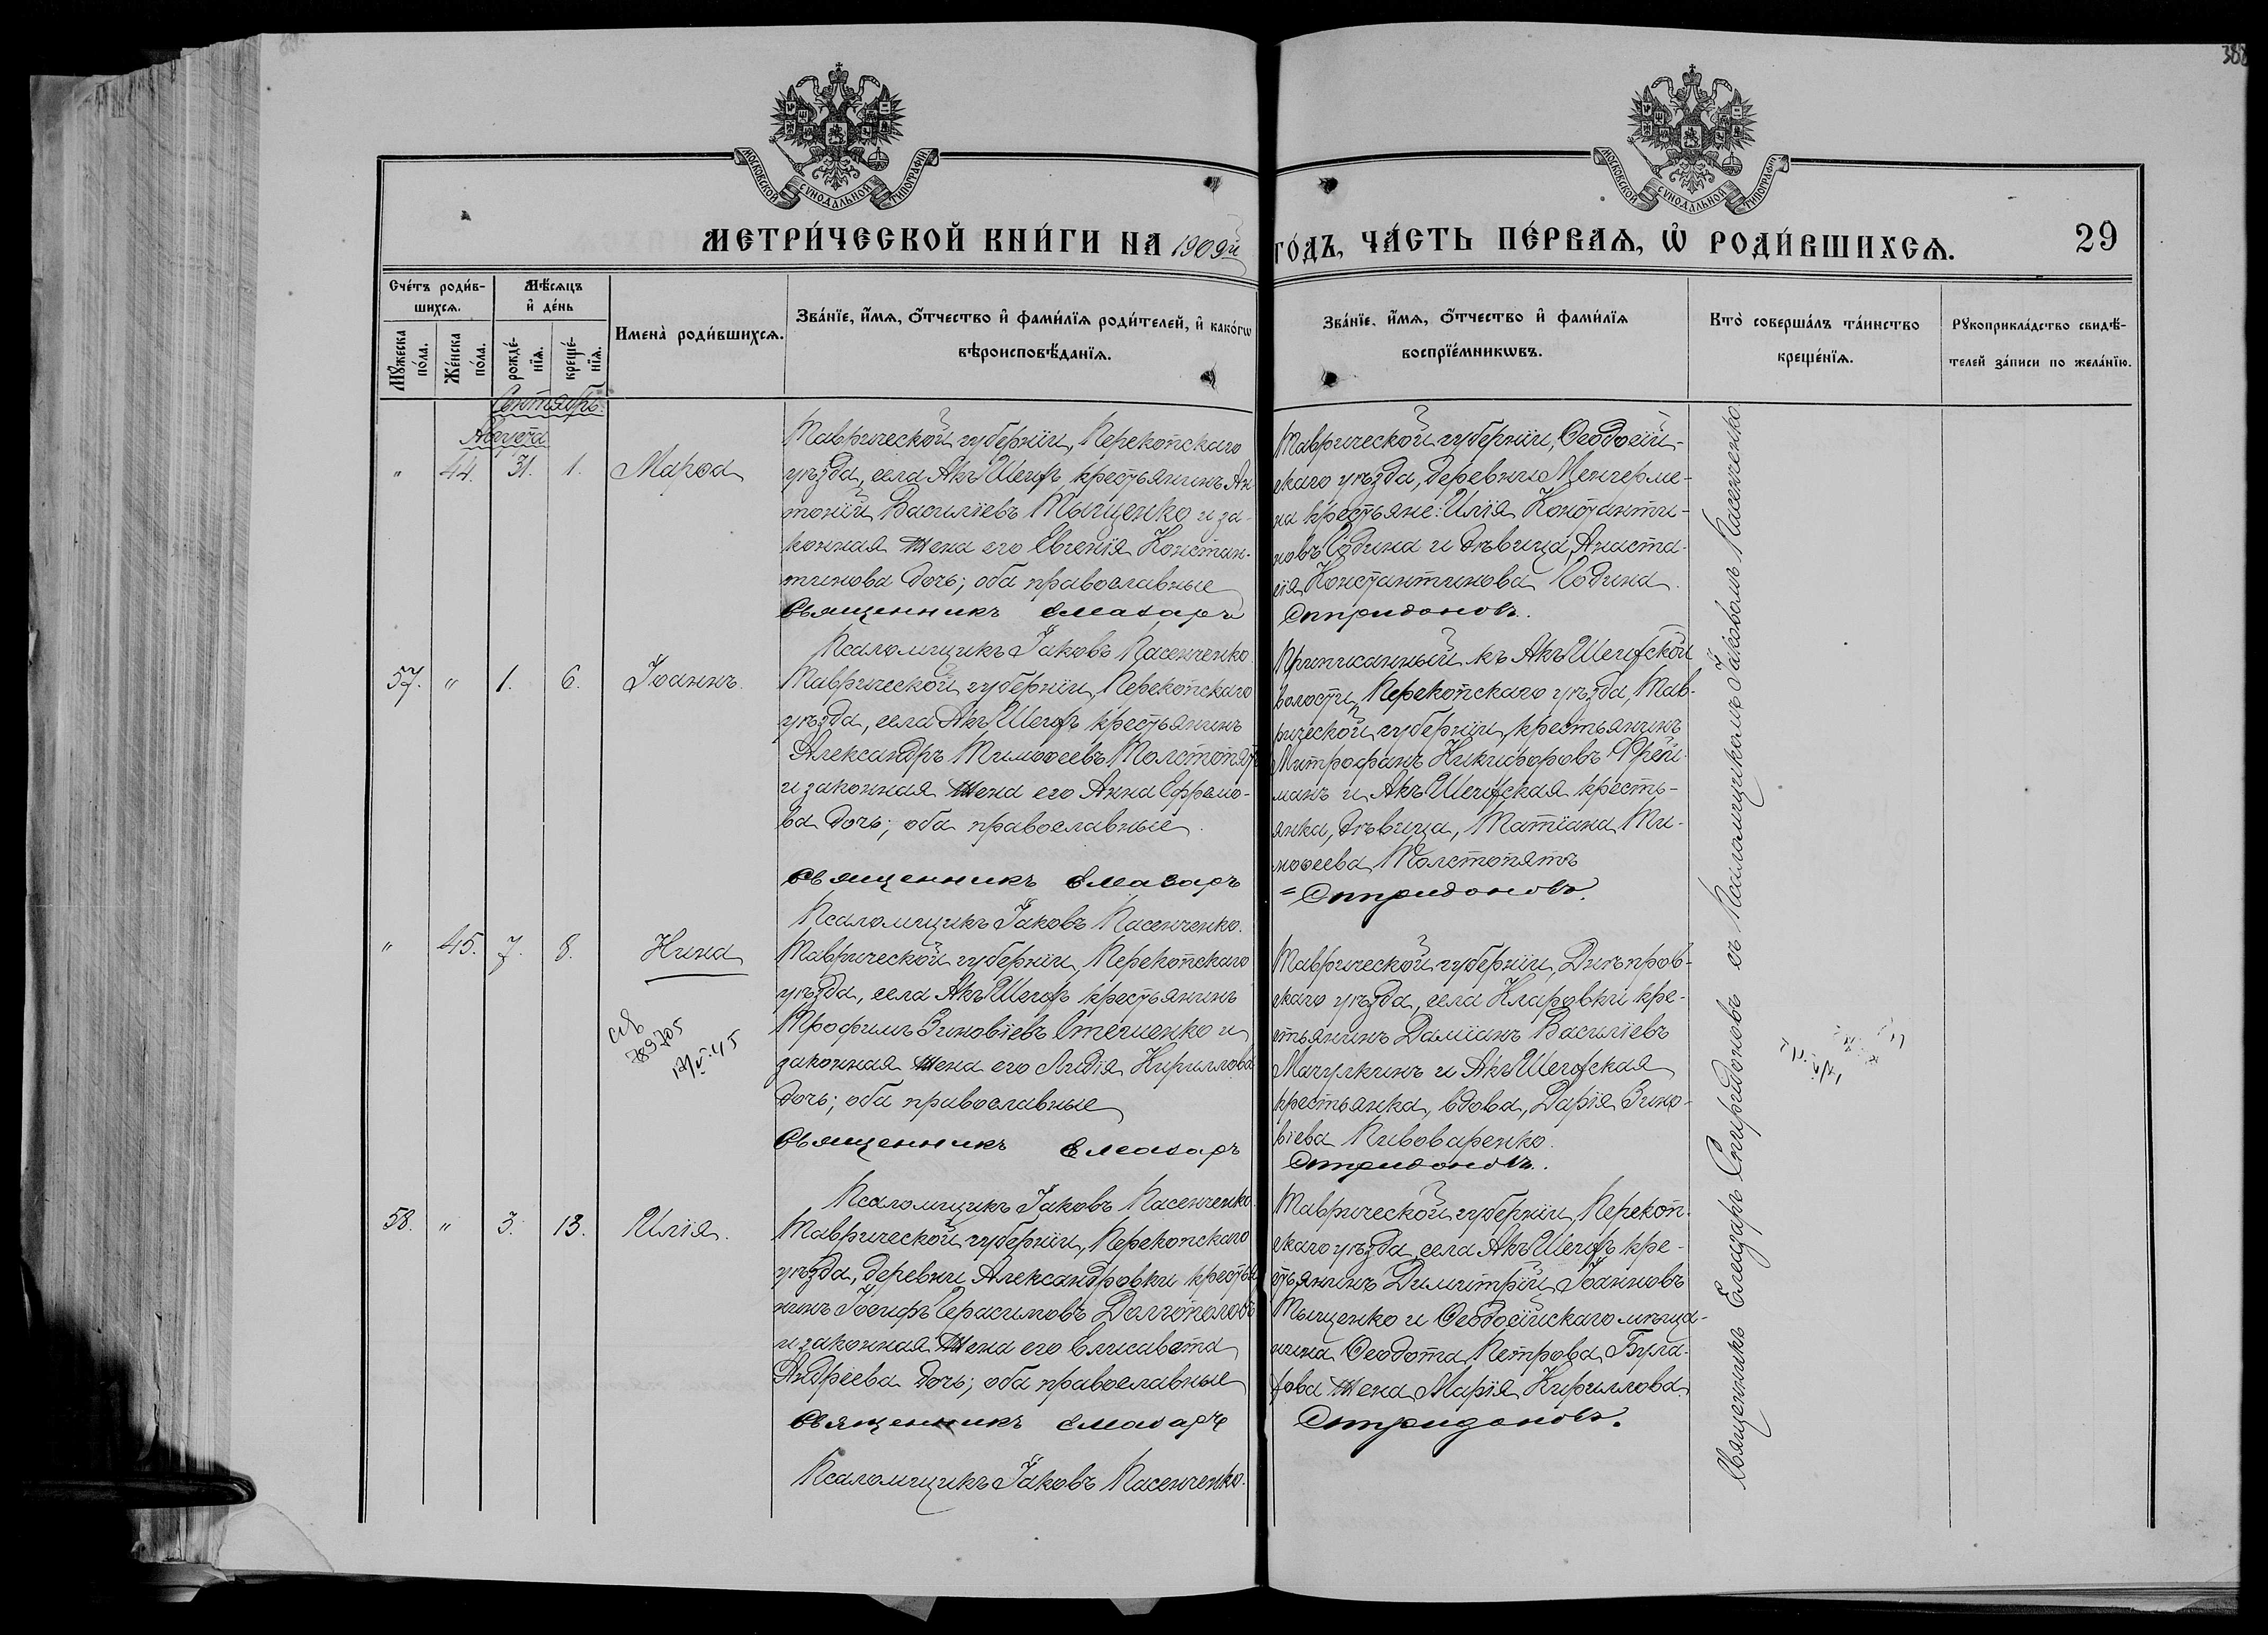 388
МОСКОВСКОЙ СѴНОДАЛЬНОЙ ТИПОГРАФІИ
МОСКОВСКОЙ СѴНОДАЛЬНОЙ ТИПОГРАФІИ
МЕТРИ́ЧЕСКОЙ КНИ́ГИ НА 1909й
ГО́ДЪ, ЧА́СТЬ ПЕ́РВАѦ, Ѡ҆ РОДИ́ВШИХСѦ.
29
Сче́тъ роди́в-
шихсѧ.
Мꙋжеска по́ла.
Же́нска по́ла.
Мѣ́сѧцъ
и҆ де́нь
рожде́-
нїѧ.
креще́-
нїѧ.
Имена̀ роди́вшихсѧ.
Зва́нїе, и҆́мѧ, ѻ҆́тчество и҆ фами́лїѧ роди́телей, и҆ како́гѡ
вѣроисповѣ́данїѧ.
Зва́нїе, и҆́мѧ, ѻ҆́тчество и҆ фами́лїѧ
воспрїе́мникѡвъ.
Кто̀ соверша́лъ та́инство
креще́нїѧ.
Рꙋкоприкла́дство свидѣ́-
телей за́писи по жела́нїю.
Сентябрь.
Августа
" 44. 31. 1. Марѳа
Таврической губерніи, Перекопскаго
уѣзда, села Акъ Шеихъ, крестьянинъ Ан-
тоній Василіевъ Тыщенко и за-
конная жена его Евгенія Констан-
тинова дочь; оба православные
Священникъ Елеазаръ
Псаломщикъ Іаковъ Пасенченко.
Таврической губерніи, Ѳеодосій-
скаго уѣзда, деревни Менгерме-
на крестьяне: Илія Константи-
новъ Година и дѣвица Анаста-
сія Константинова Година.
Спиридоновъ.
57. " 1. 6. Іоаннъ.
Таврической губерніи, Перекопскаго
уѣзда, села Акъ Шеихъ крестьянинъ
Александръ Тимоѳеевъ Толстопятъ
и законная жена его Анна Ефремо-
ва дочь; оба православные.
Священникъ Елеазаръ
Псаломщикъ Іаковъ Пасенченко.
Приписанный къ Акъ Шеихской
волости, Перекопскаго уѣзда, Тав-
рической губерніи, крестьянинъ
Митрофанъ Никифоровъ Фрей-
манъ и Акъ Шеихская кресть-
янка, дѣвица, Татіана Ти-
моѳеева Толстопятъ
Спиридоновъ.
" 45. 7. 8. Нина
Таврической губерніи, Перекопскаго
уѣзда, села Акъ Шеихъ крестьянинъ
Трофимъ Зиновіевъ Стешенко и
законная жена его Лидія Кириллова
дочь; оба православные
Священникъ Елеазаръ
Псаломщикъ Іаковъ Пасенченко
Таврической губерніи, Днѣпров-
скаго уѣзда, села Кларовки кре-
стьянинъ Даміанъ Василіевъ
Мачулкинъ и Акъ Шеихская
крестьянка, вдова, Дарія Зино-
віева Пивоваренко.
Спиридоновъ.
58. " 3. 13. Илія.
Таврической губерніи, Перекопскаго
уѣзда, деревни Александровки крестья-
нинъ Іосифъ Герасимовъ Долгополовъ
и законная жена его Елисавета
Андреева дочь; оба православные
Священникъ Елеазаръ
Псаломщикъ Іаковъ Пасенченко.
Таврической губерніи, Перекоп-
скаго уѣзда, села Акъ Шеихъ кре-
стьянинъ Димитрій Іоанновъ
Тыщенко и Ѳеодосійскаго мѣща-
нина Ѳеодота Петрова Була-
хова жена Марія Кириллова.
Спиридоновъ.
Священникъ Елеазаръ Спиридоновъ съ Псаломщикомъ Іаковомъ Пасенченко.